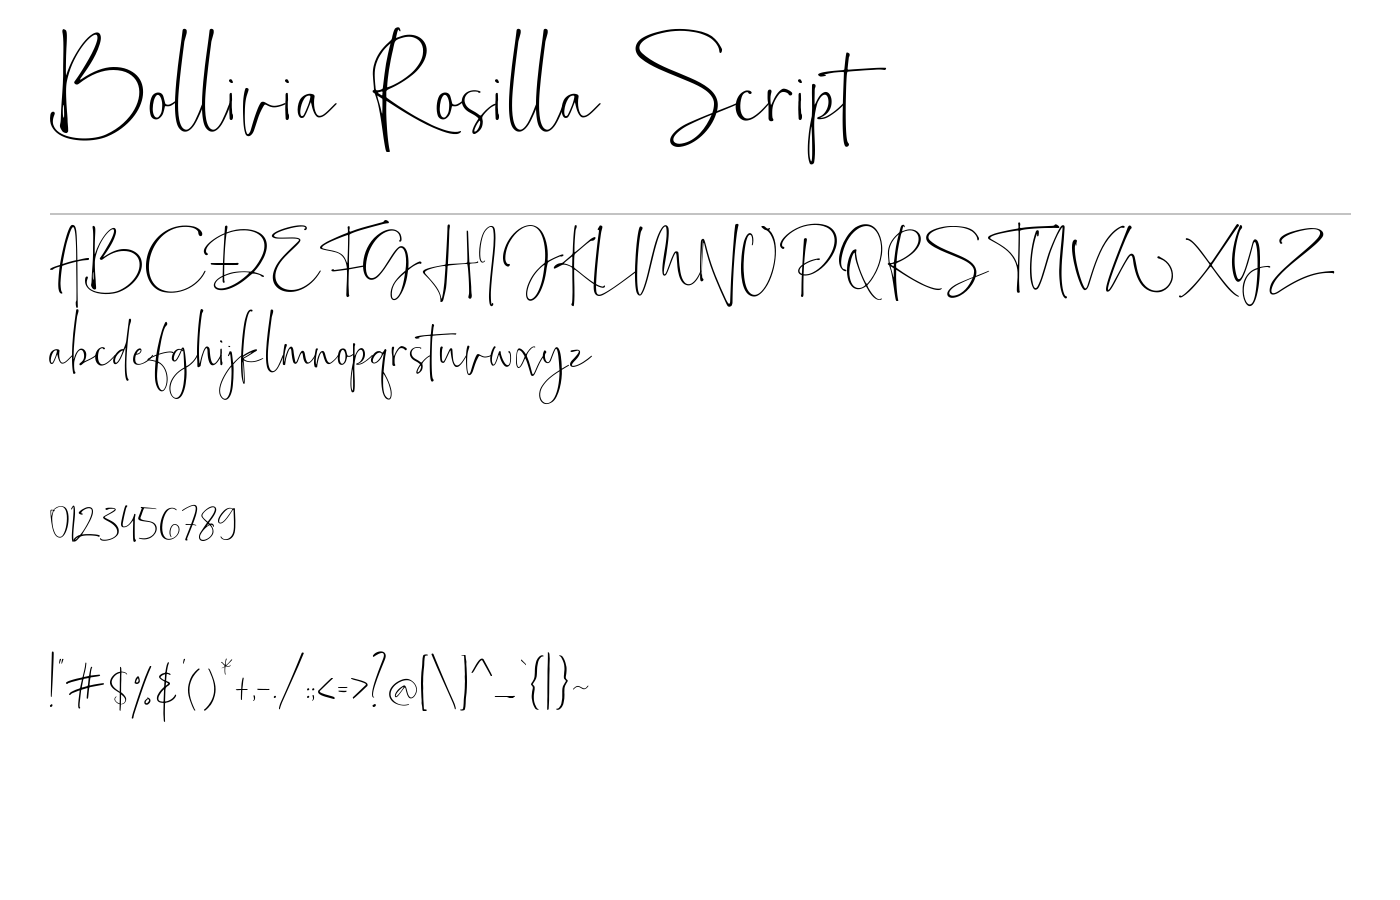 Bollivia Rosilla Script
ABCDEFGHIJKLMNOPQRSTUVWXYZ
abcdefghijklmnopqrstuvwxyz
0123456789
!"#$%&'()*+,-./:;<=>?@[\]^_`{|}~